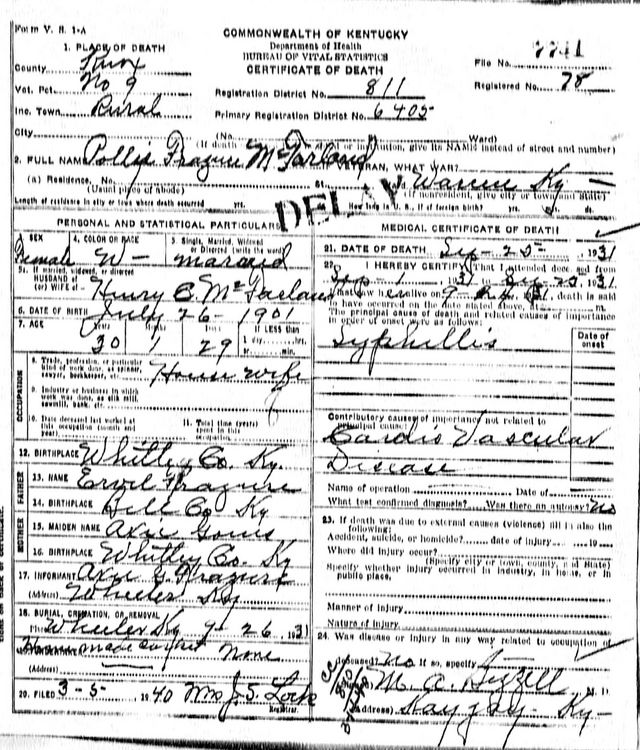 Form V. S. 1-A
COMMONWEALTH OF KENTUCKY
Department of Health
BUREAU OF VITAL STATISTICS
CERTIFICATE OF DEATH
File No. 7741
Registered No. 78
1. PLACE OF DEATH
County Knox
Vot. Pct. No 9
Inc. Town Rural
City
Registration District No. 811
Primary Registration District No. 6405
(No. Ward)
(If death in a hospital or institution, give its NAME instead of street and number)
2. FULL NAME Pollie Frazure McFarland
VETERAN, WHAT WAR?
(a) Residence, No. St. Warren Ky
(Usual place of abode) (If nonresident, give city or town and State)
Length of residence in city or town where death occurred yrs. How long in U. S., if of foreign birth? yrs. ds.
DELAY
PERSONAL AND STATISTICAL PARTICULARS
3. SEX Female
4. COLOR OR RACE W
5. Single, Married, Widowed or Divorced (write the word) married
5a. If married, widowed, or divorced
HUSBAND of
(or) WIFE of Henry C. McFarland
6. DATE OF BIRTH July 26 - 1901
7. AGE Years Months Days If LESS than
30 1 29 1 day, hrs. or min.
OCCUPATION
8. Trade, profession, or particular kind of work done, as spinner, sawyer, bookkeeper, etc. House wife
9. Industry or business in which work was done, as silk mill, sawmill, bank, etc.
10. Date deceased last worked at this occupation (month and year)
11. Total time (years) spent in this occupation
12. BIRTHPLACE Whitley Co. Ky.
FATHER
13. NAME Frazure
14. BIRTHPLACE Bell Co Ky
MOTHER
15. MAIDEN NAME
16. BIRTHPLACE Whitley Co. Ky
17. INFORMANT Frazure
(Address) Wheeler Ky
18. BURIAL, CREMATION, OR REMOVAL
Place Wheeler Ky 9-26, 1931
made casket None
(Address)
20. FILED 3-5- 1940 Mrs J. S. Lock
Registrar.
MEDICAL CERTIFICATE OF DEATH
21. DATE OF DEATH Sep-25- 1931
22. I HEREBY CERTIFY, That I attended deceased from
Sep-1 31 Sep 25, 31
I last saw alive on 9-24, 31, death is said
to have occurred on the date stated above, at m.
The principal cause of death and related causes of importance
in order of onset were as follows:
Date of onset
Syphillis
Contributory causes of importance not related to
principal cause:
Cardio Vascular
Disease
Name of operation Date of
What test confirmed diagnosis? Was there an autopsy? No
23. If death was due to external causes (violence) fill in also the
following:
Accident, suicide, or homicide? date of injury 19
Where did injury occur?
(Specify city or town, county, and State)
Specify whether injury occurred in industry, in home, or in
public place.
Manner of injury
Nature of injury
24. Was disease or injury in any way related to occupation of
deceased? No If so, specify
M. D.
(Address) Kayjay - Ky -